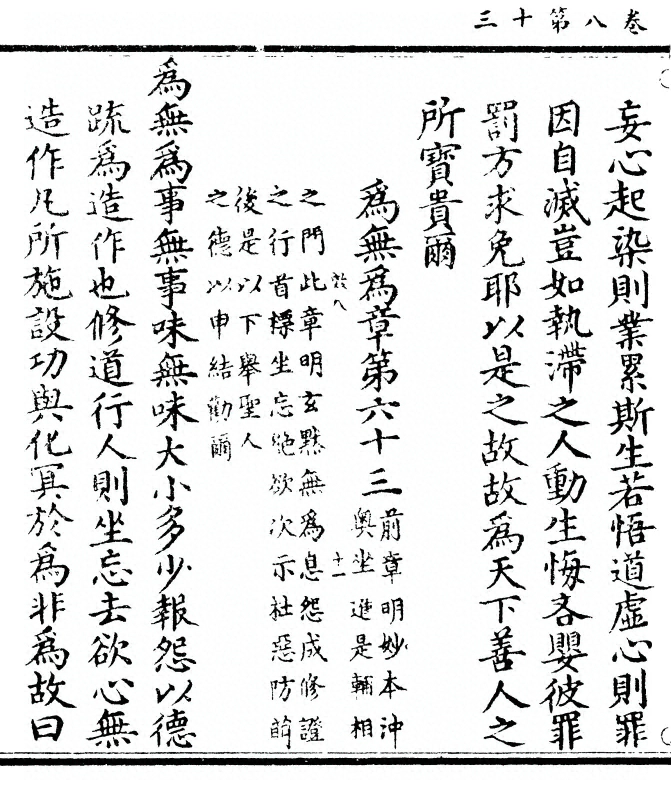 三十第八卷
妄心起染則業累斯生若悟道虛心則罪
因自滅豈如執滯之人動生悔吝嬰彼罪
罰方求免耶以是之故故為天下善人之
所寶貴爾
為無為章第六十三
前章明妙本沖
奧坐進是輔相
之門此章明玄默無為息怨成修證
之行首標坐忘絶欲次示杜惡防萌
後是以下舉聖人
之德以申結勸爾
為無為事無事味無味大小多少報怨以德
疏為造作也修道行人則坐忘去欲心無
造作凡所施設功與化冥於為非為故曰